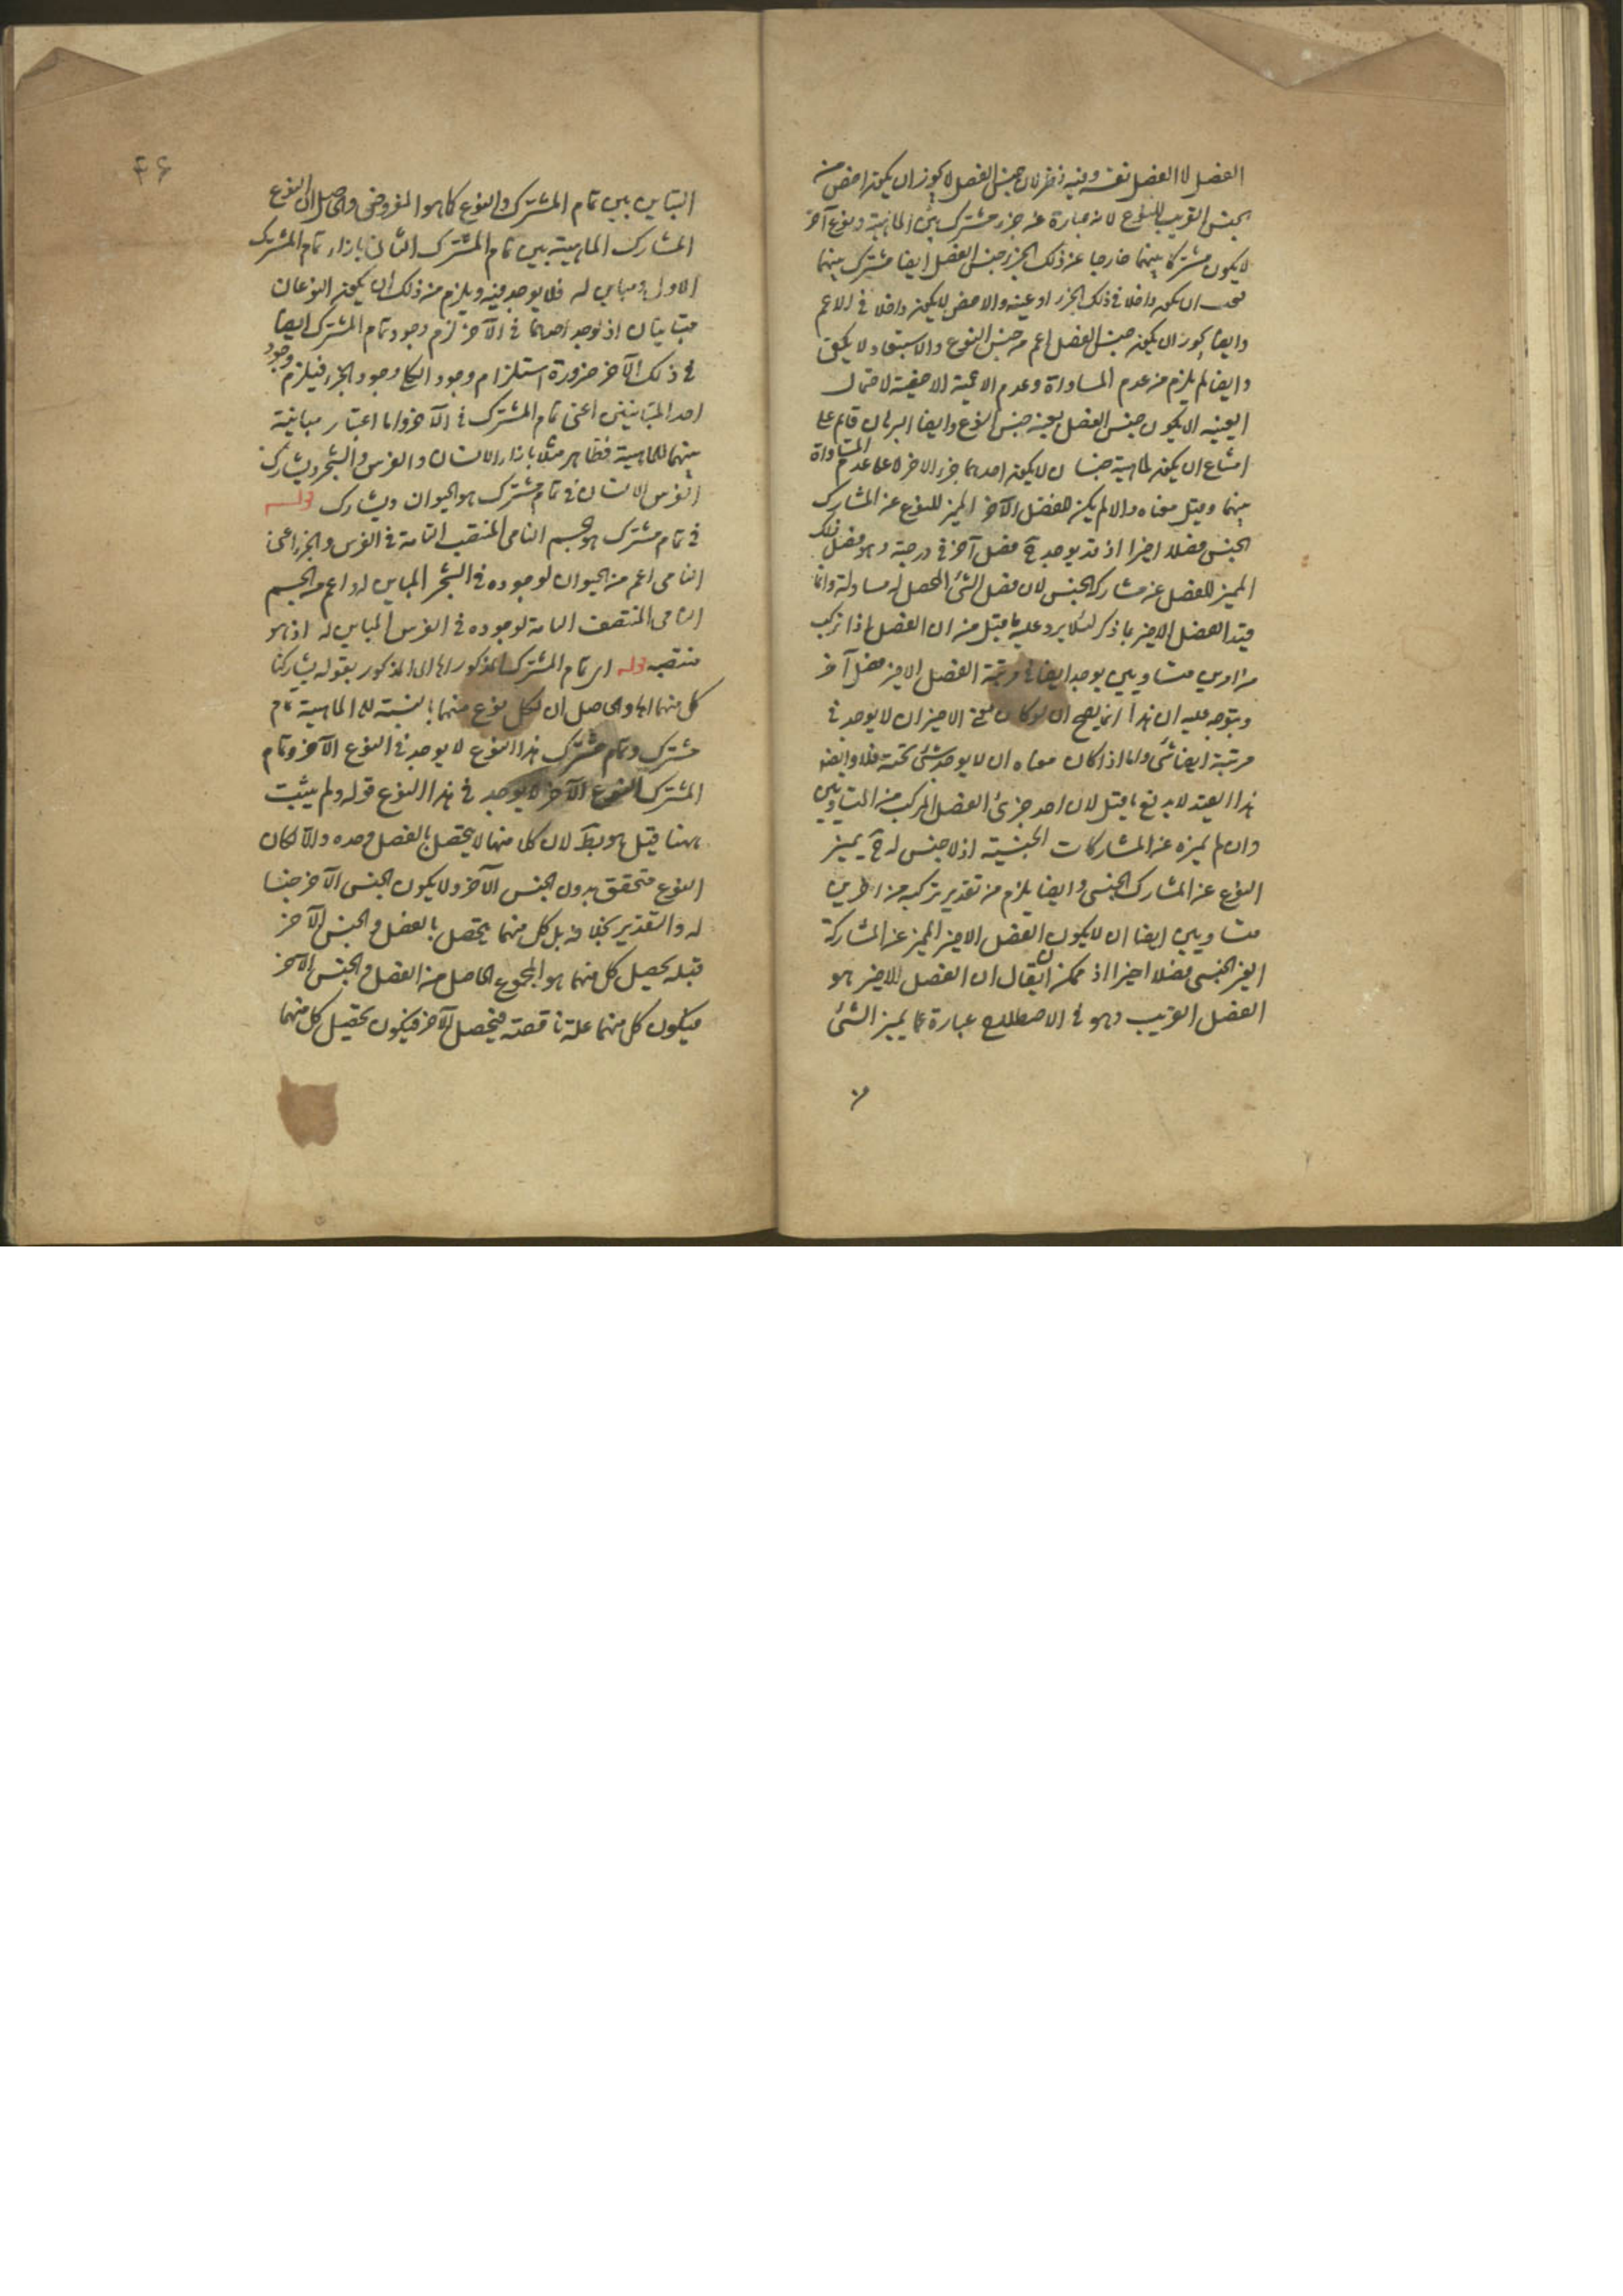 الفصل لا الفصل نفسه وفيه نظر لان جنس الفصل لا يجوز ان يكون اخص من
الجنس القريب للنوع لانه عبارة عن جزء مشترك بين الماهية ونوع آخر
لا يكون مشتركا بينهما خارجا عن ذلك الجزء وجنس الفصل ايضا مشترك بينهما
ان يكون داخلا في ذلك الجزء او عينه والاخص لا يكون داخلا في الاعم
وايضا يجوز ان يكون جنس الفصل اعم من جنس النوع ولا
وايضا لم يلزم من عدم المساواة وعدم الاعمية الاخصية لاحتمال
العينية الا يكون جنس الفصل بعينه جنس النوع وايضا البرهان قائم على
امتناع ان يكون لماهية جنسان لا يكون احدهما جزء الاخر لا على عدم المساواة
بينهما وقيل معناه والا لم يكن الفصل الآخر المميز للنوع عن المشارك
الجنس فصلا اخيرا اذ قد يوجد ح فصل آخر في درجته وهو فصل ذلك
المميز للفصل عن مشاركه الجنس لان فصل الشئ المحصل له مساو له وانما
قيد الفصل الاخير بما ذكر لئلا يرد عليه ما قيل من ان الفصل اذا تركب
من امرين متساويين يوجد ايضا في مرتبة الفصل الاخير فصل آخر
ويتوجه عليه ان هذا انما يصح ان لو كان معنى الاخير ان لا يوجد في
مرتبة ايضا شئ واما اذا كان معناه ان لا يوجد شئ تحته فلا وايضا
هذا القيد لا يدفع ما قيل لان احد جزئ الفصل المركب من المتساويين
وان لم يميزه عن المشاركات الجنسية اذ لا جنس له ح يميز
النوع عن المشارك الجنسى وايضا يلزم من تقدير تركبه من امرين
متساويين ايضا ان لا يكون الفصل الاخير المميز عن المشاركة
الغير الجنسى فصلا اخيرا اذ ممكن ان يقال ان الفصل الاخير هو
الفصل القريب وهو في الاصطلاح عبارة عما يميز الشئ
٤٦
التباين بين تمام المشترك والنوع كما هو المفروض والحاصل ان النوع
المشارك الماهية بين تمام المشترك الثانى بازاء تمام المشترك
الاول ومباين له فلا يوجد فيه ويلزم من ذلك ان يكون النوعان
متباينان اذ لو وجد احدهما في الآخر لزم وجود تمام المشترك ايضا
في ذلك الآخر ضرورة استلزام وجود الكل وجود الجزء فيلزم وجود
احد المتباينين اعنى تمام المشترك في الآخر واما اعتبار مباينة
بينهما للماهية فظاهر مثلا بازاء الانسان والفرس والشجر ويشارك
الفرس الانسان في تمام مشترك هو الحيوان ويشارك قوله
في تمام مشترك هو الجسم النامى المنتصب القامة في الفرس والجزء اعنى
النامى اعم من الحيوان لوجوده في الشجر المباين له واعم من الجسم
النامى المنتصف القامة لوجوده في الفرس المباين له اذ هو
منتصب قوله اى تمام المشترك المذكور اما الى المذكور بقوله يشاركنا
كل منهما اه والحاصل ان لكل نوع منهما بالنسبة الى الماهية تمام
مشترك وتمام مشترك هذا النوع لا يوجد في النوع الآخر وتمام
المشترك النوع الآخر لا يوجد في هذا النوع قوله ولم يثبت
ههنا قيل هو بط لان كلا منهما لا يتحصل بالفصل وحده والا لكان
النوع متحقق بدون الجنس الآخر ولا يكون الجنس الآخر جنسا
له والتقدير بخلافه بل كل منهما يتحصل بالفصل والجنس الآخر
قبله يحصل كل منهما هو المجموع الحاصل من الفصل والجنس الآخر
فيكون كل منهما علة ناقصة فيحصل الآخر فيكون تحصيل كل منهما